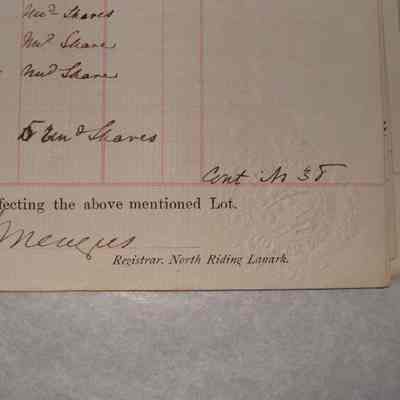 Und Shares
Und Share
Und Share
5 Und Shares
Cont
fecting the above mentioned Lot.
Registrar. North Riding Lanark.